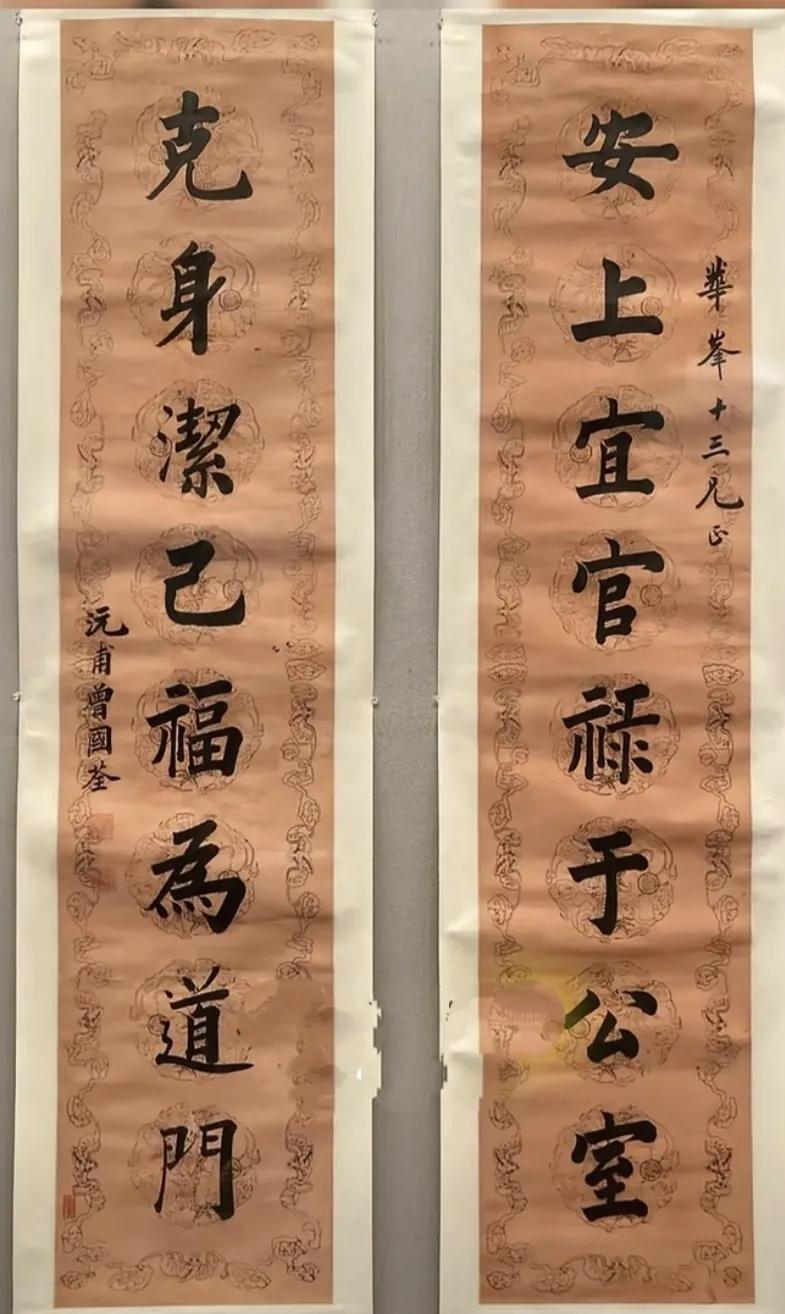 華峯十三兄正
安上宜官祿于公室
克身潔己福為道門
沅甫曾國荃